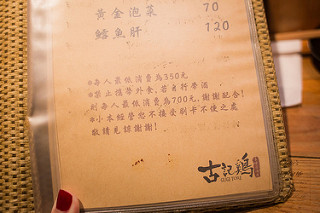 黃金泡菜 70
鱈魚肝 120
※每人最低消費為350元
※禁止攜帶外食,若自行帶酒
則每人最低消費為700元,謝謝配合!
※小本經營恕不接受刷卡不便之處
敬請見諒謝謝!
古記鶏